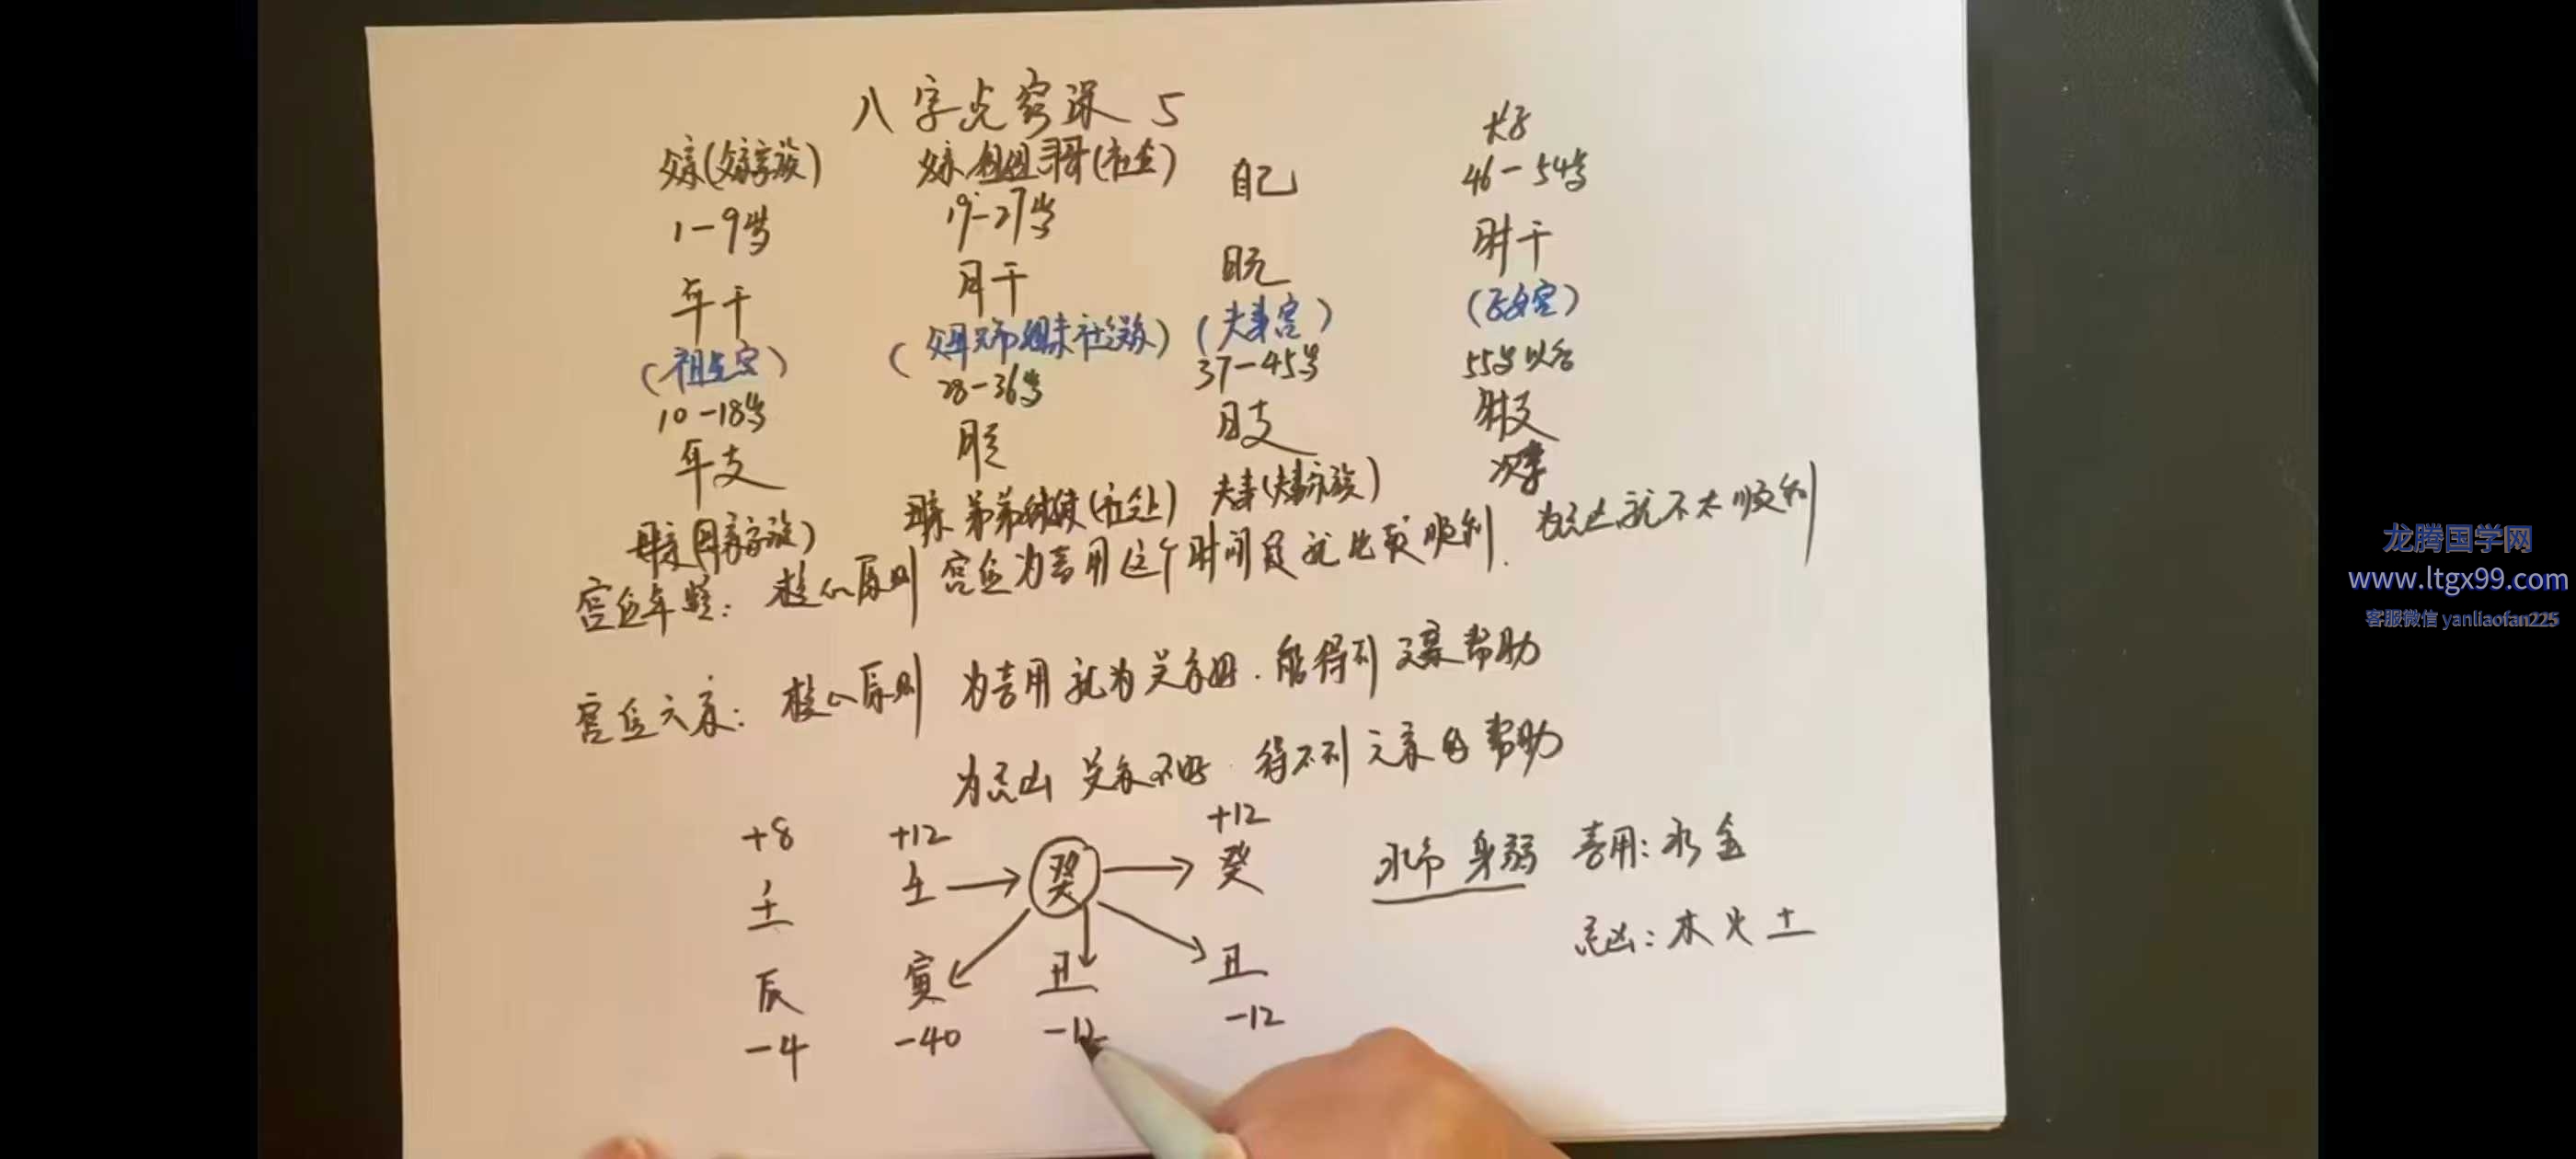 八字点窍课 5
父亲(父亲家族) 父亲 姐姐哥哥(社会) 自己 长子
1-9岁 19-27岁 46-54岁
年干 月干 日元 时干
(祖先宫) (父母兄弟姐妹社会关系) (夫妻宫) (子女宫)
10-18岁 28-36岁 37-45岁 55岁以后
年支 月支 日支 时支
母亲(母亲家族) 母亲 弟弟妹妹(社会) 夫妻(夫妻家族) 次子
宫位年龄: 核心原则 宫位为喜用这个时间段就比较顺利. 为忌凶就不太顺利
宫位六亲: 核心原则 为喜用就为关系好. 能得到六亲帮助
为忌凶 关系不好. 得不到六亲的帮助
+8 +12 +12
壬 壬 癸 癸 水命 身弱 喜用: 水金
辰 寅 丑 丑 忌凶: 木火土
-4 -40 -12 -12
龙腾国学网
www.ltgx99.com
客服微信 yanliaofan225